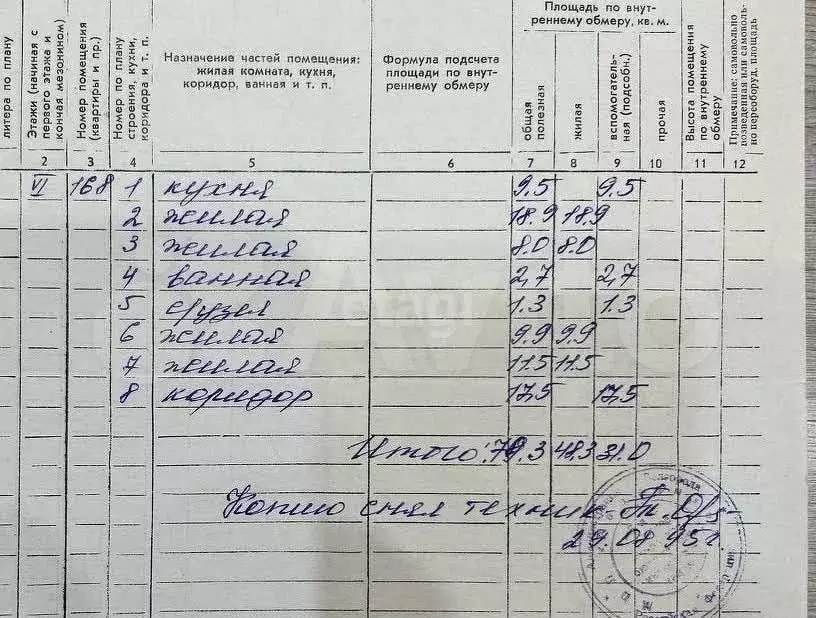 литера по плану
Этажи (начиная с первого этажа и кончая мезонином)
Номер помещения (квартиры и пр.)
Номер по плану строения, кухни, коридора и т. п.
Назначение частей помещения:
жилая комната, кухня,
коридор, ванная и т. п.
Формула подсчета
площади по внут-
реннему обмеру
Площадь по внут-
реннему обмеру, кв. м.
общая полезная
жилая
вспомогатель-ная (подсобн.)
прочая
Высота помещения по внутреннему обмеру
Примечание: самовольно возведенная или самоволь-но переоборуд. площадь
2 3 4 5 6 7 8 9 10 11 12
VI 168 1 кухня 9.5 9.5
2 жилая 18.9 18.9
3 жилая 8.0 8.0
4 ванная 2,7 2,7
5 с/узел 1.3 1.3
6 жилая 9.9 9.9
7 жилая 11.5 11.5
8 коридор 17,5 17,5
Итого: 79.3 48.3 31.0
Копию снял техник
29.08 95г.